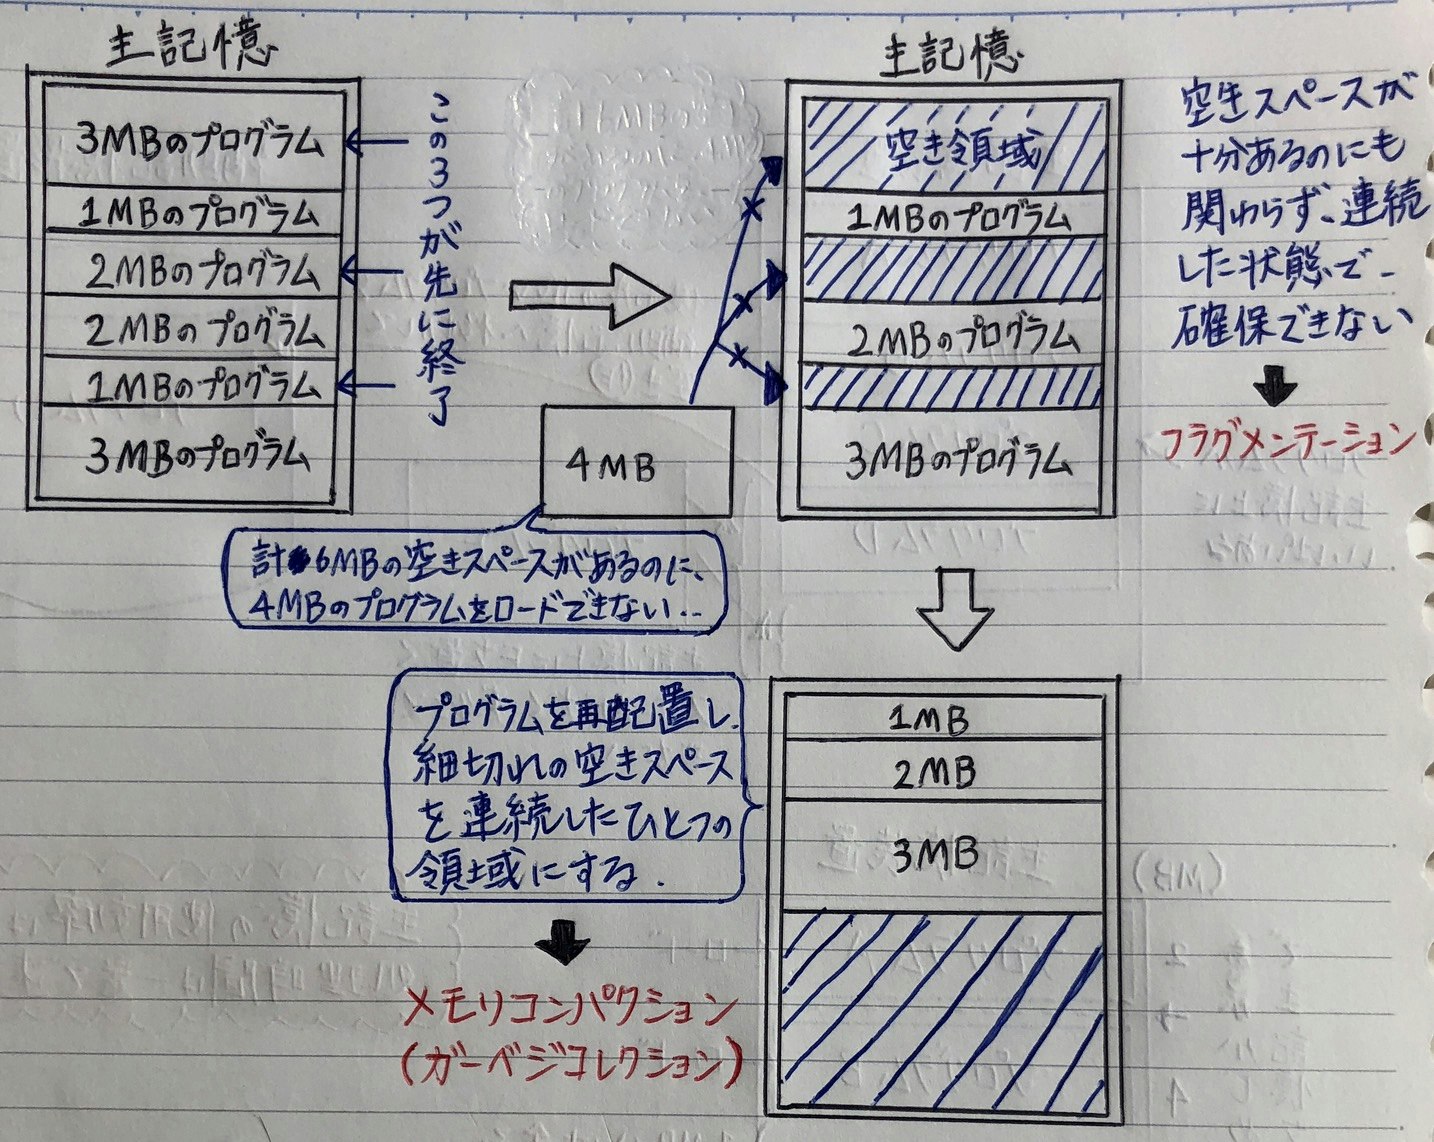 主記憶
3MBのプログラム
1MBのプログラム
2MBのプログラム
2MBのプログラム
1MBのプログラム
3MBのプログラム
この3つが先に終了
4MB
計6MBの空きスペースがあるのに、
4MBのプログラムをロードできない...
主記憶
空き領域
1MBのプログラム
2MBのプログラム
3MBのプログラム
空きスペースが
十分あるのにも
関わらず、連続
した状態で、
確保できない
フラグメンテーション
プログラムを再配置し、
細切れの空きスペース
を連続したひとつの
領域にする.
メモリコンパクション
(ガーベジコレクション)
1MB
2MB
3MB